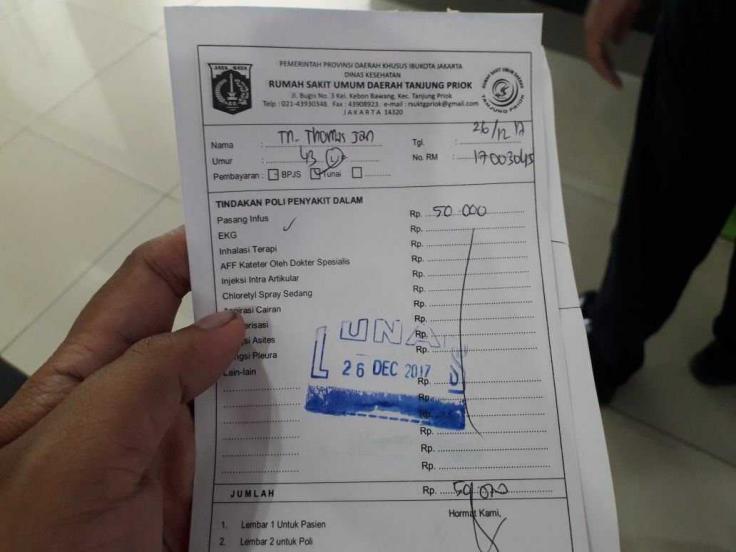 JAYA RAYA
PEMERINTAH PROVINSI DAERAH KHUSUS IBUKOTA JAKARTA
DINAS KESEHATAN
RUMAH SAKIT UMUM DAERAH TANJUNG PRIOK
Jl. Bugis No. 3 Kel. Kebon Bawang, Kec. Tanjung Priok
Telp : 021-43930348. Fax : 43908923. e-mail : rsuktgpriok@gmail.com
JAKARTA 14320
RUMAH SAKIT UMUM DAERAH
TANJUNG PRIOK
Nama : Tn. Thomas Jan
Tgl. : 26/12 17
Umur : 43
No. RM : 17003045
Pembayaran : BPJS Tunai
TINDAKAN POLI PENYAKIT DALAM
Pasang Infus Rp. 50.000
EKG ✓ Rp.
Inhalasi Terapi Rp.
AFF Kateter Oleh Dokter Spesialis Rp.
Injeksi Intra Artikular Rp.
Chloretyl Spray Sedang Rp.
Aspirasi Cairan Rp.
erisasi Rp.
si Asites Rp.
ngsi Pleura
Lain-lain Rp.
LUNAS
26 DEC 2017
Rp.
Rp.
Rp.
Rp.
Rp.
JUMLAH Rp. 50.000
Hormat Kami,
1. Lembar 1 Untuk Pasien
2. Lembar 2 untuk Poli